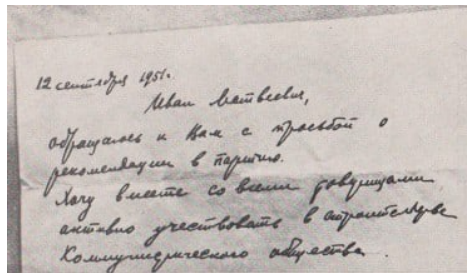 12 сентября 1951г.
Иван Матвеевич,
обращаюсь к Вам с просьбой о
рекомендации в партию.
Хочу вместе со всеми
активно участвовать в строительстве
Коммунистического общества.